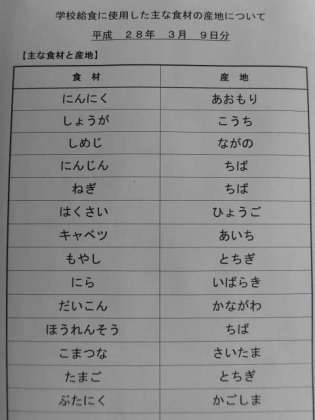 学校給食に使用した主な食材の産地について
平成 28年 3月 9日分
【主な食材と産地】
食 材 産 地
にんにく あおもり
しょうが こうち
しめじ ながの
にんじん ちば
ねぎ ちば
はくさい ひょうご
キャベツ あいち
もやし とちぎ
にら いばらき
だいこん かながわ
ほうれんそう ちば
こまつな さいたま
たまご とちぎ
ぶたにく かごしま